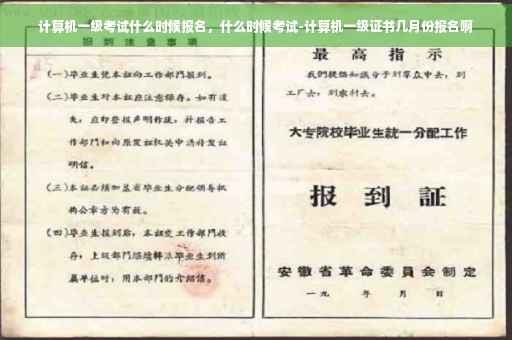 计算机一级考试什么时候报名，什么时候考试-计算机一级证书几月份报名啊
报到注意事项
(一)毕业生凭本证向工作部门报到。
(二)毕业生对本证应注意保存。如有遗
失，应即登报声明作废，并报告工
作部门和向原发证机关申请补发证
明信。
(三)本证必须加盖省毕业生分配领导机
构公章方为有效。
(四)毕业生报到后，本证交工作部门收
存；上级部门继续转派毕业生到所
属单位时，用本部门的介绍信。
最高指示
我们提倡知识分子到群众中去，到
工厂去，到农村去。
大专院校毕业生統一分配工作
报到証
安徽省革命委員会制定
一九 年 月 日